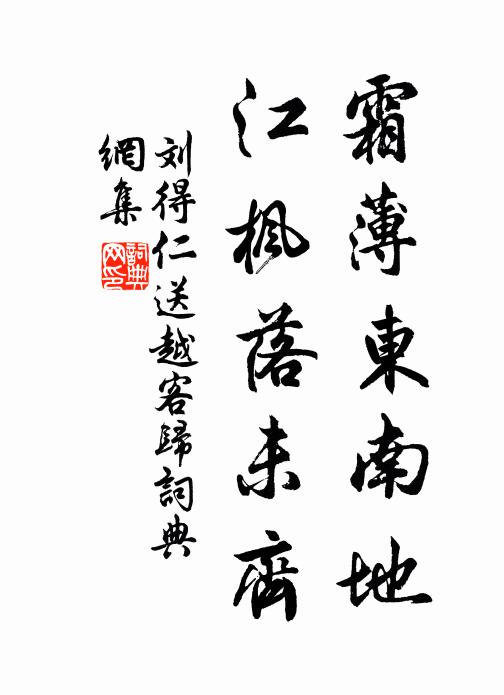 霜薄東南地
江楓落未齊
刘得仁送越客歸詞典
網集
詞典网印